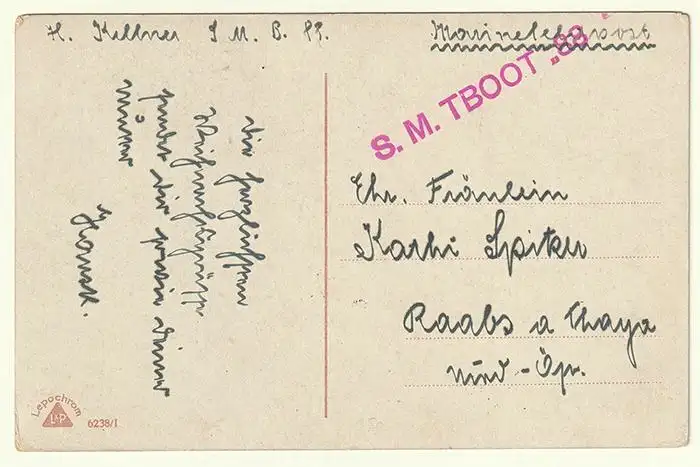 H. Kellner S. M. B. 88.
Marinefeldpost
S. M. TBOOT „88"
die herzlichsten
Weihnachtsgrüße
sendet dir sowie deiner
Hansl.
Ehr. Fräulein
Kathi Spitzer
Raabs a Thaya
Nied-Öst.
Lepochrom
L-P
6238/I